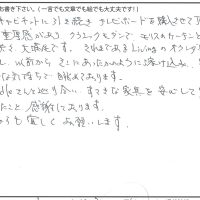 お書き下さい。(一言でも文章でも絵でも大丈夫です!)
キャビネットに引き続き テレビボードを購入させて
重厚感があり、クラシックモダンで モリスのカーテンと
大満足です。それまであるLivingの
、以前から そこにあったかのように溶け込み、
な気持ちで 眺めております。
さんと巡り合い、すてきな家具を安心して
たこと 感謝しております。
も宜しくお願いします。